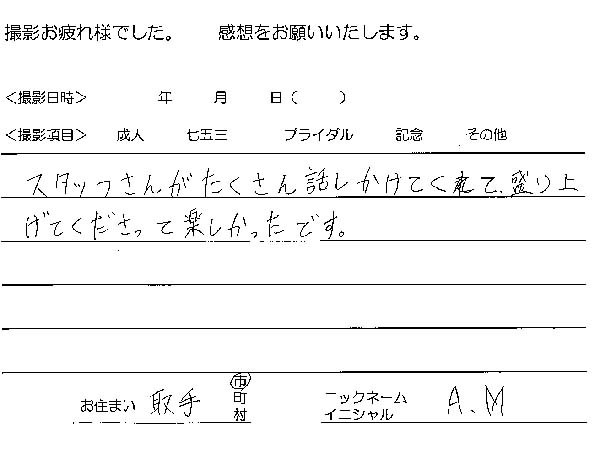 撮影お疲れ様でした。 感想をお願いいたします。
<撮影日時> 年 月 日( )
<撮影項目> 成人 七五三 ブライダル 記念 その他
スタッフさんがたくさん話しかけてくれて、盛り上
げてくださって楽しかったです。
お住まい 取手 市 町 村 ニックネーム イニシャル A.M